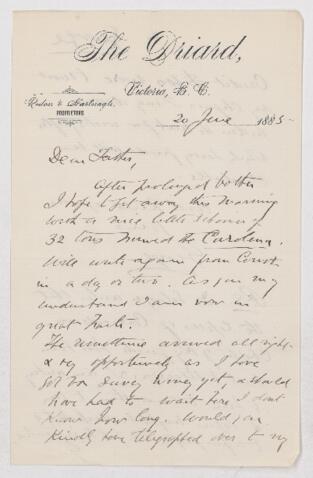 The Driard,
Victoria, B. C.
Redon &
PROPRIETORS
20 June 1885
Dear Father,
After prolonged bother
I hope to get away this morning
with a nice little schooner of
32 tons named the Carolena.
Will write again from Const
in a day or two. As you may
understand I am now in
great haste.
The remittance arrived all right
& very opportunely as I have
got no Savey money yet, & would
have had to wait here I dont
know how long. Would you
kindly have telegraphed over to my